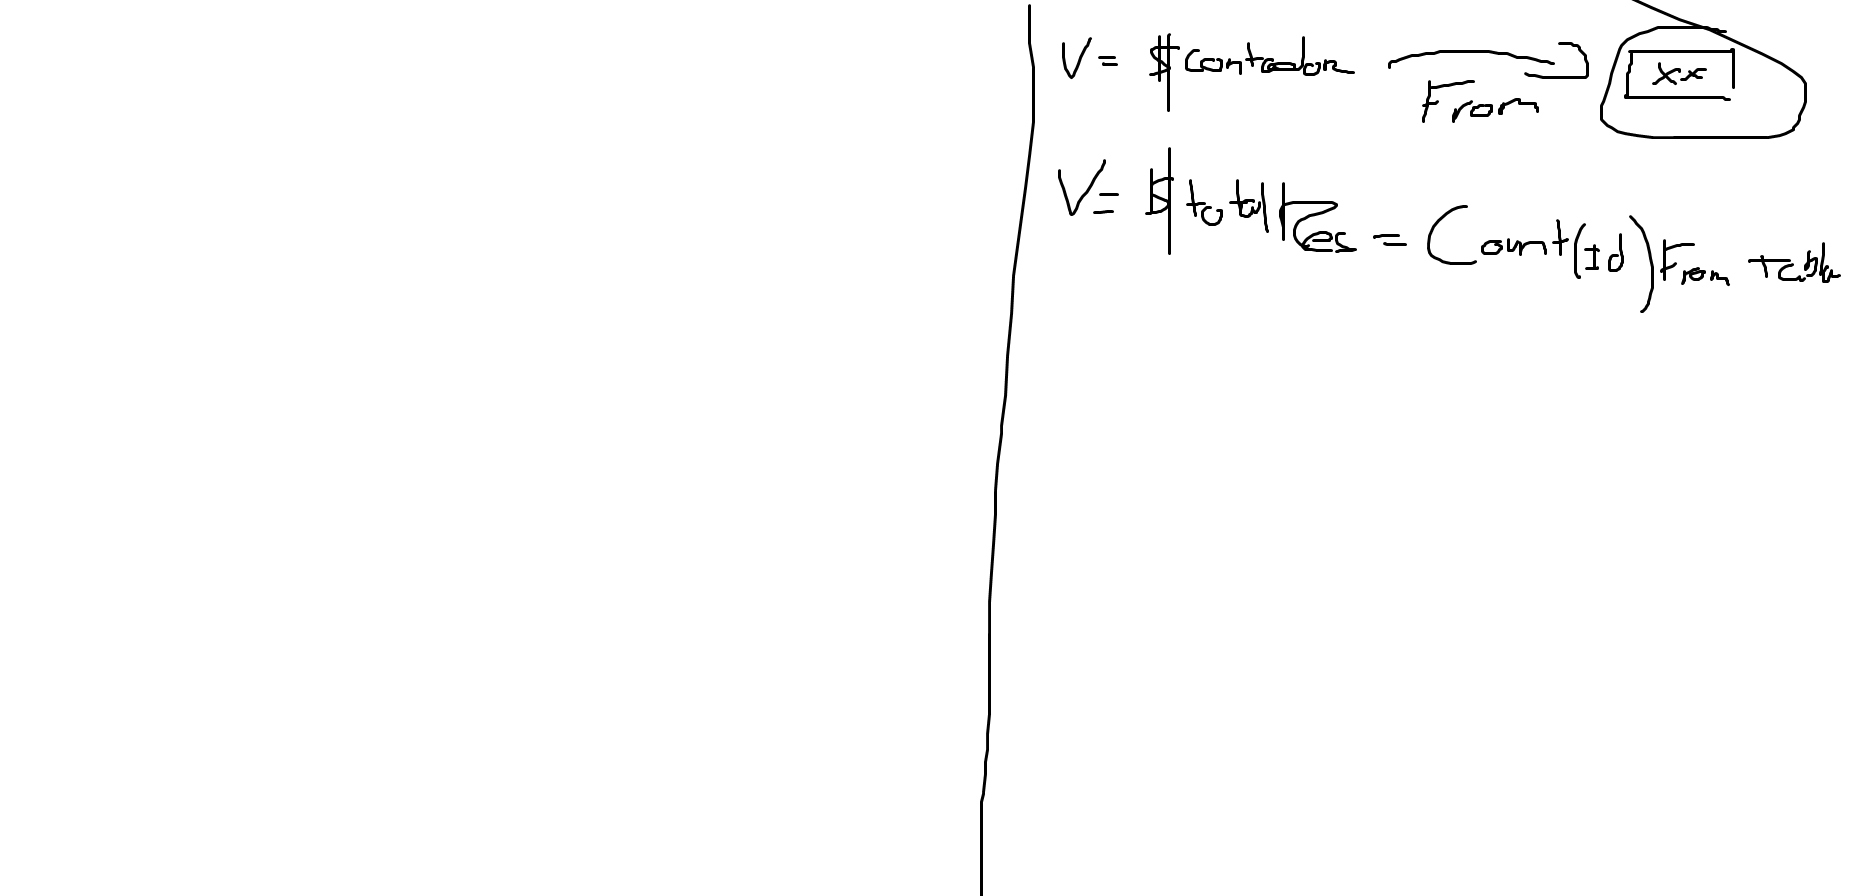 V = $contador From xx
V= $totalRes = Count(Id) From tabla